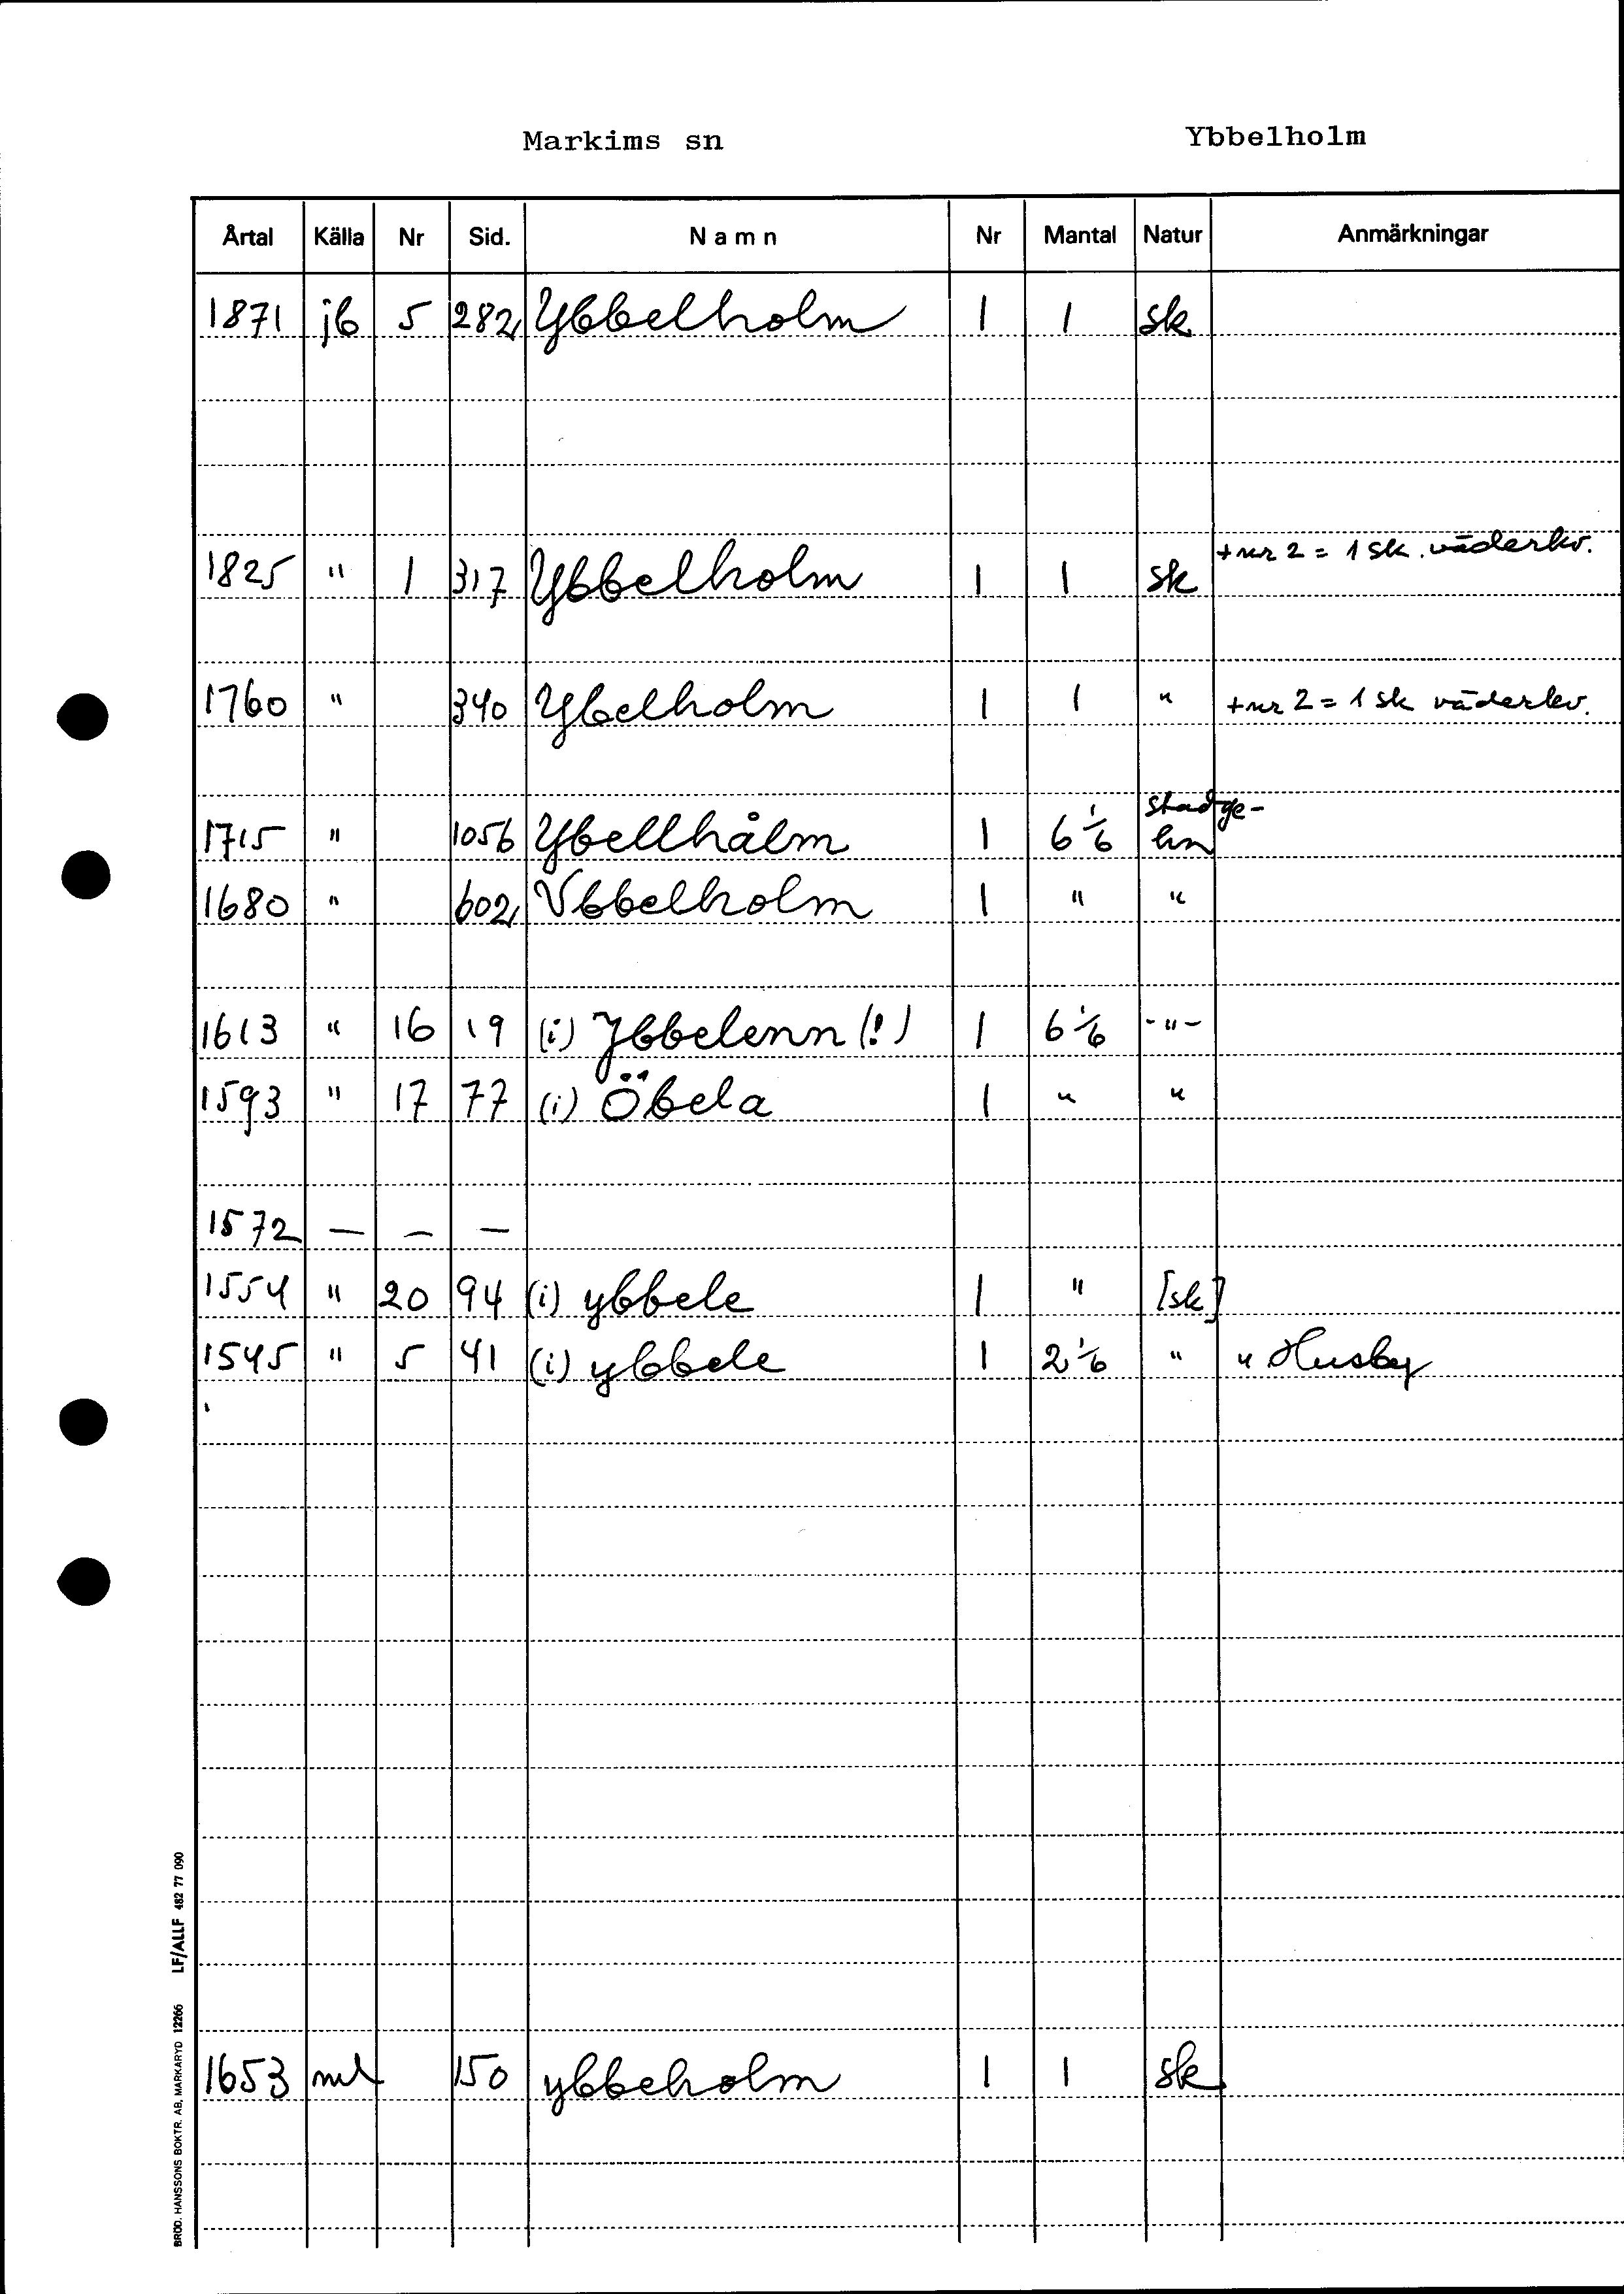 Markims sn Ybbelholm
Årtal Källa Nr Sid. Namn Nr Mantal Natur Anmärkningar
1871 jb 5 282 Ybbelholm 1 1 sk
+ nr 2 = 1 sk. väderkv.
1825 " 1 317 Ybbelholm 1 1 sk
1760 " 340 Ybelholm 1 1 " + nr 2 = 1 sk väderkv.
stadge-
1715 " 1056 Ybellhålm 1 6 1/6 hn
1680 " 602 Vbbelholm 1 " "
1613 " 16 19 (i) Ybbelenn (!) 1 6 1/6 -"-
1593 " 17 77 (i) Öbela 1 " "
1572 — – —
1554 " 20 94 (i) ybbele 1 " [sk]
1545 " 5 41 (i) ybbele 1 2 1/6 " u Husby
1653 ml 150 ybbeholm 1 1 sk
BRÖD. HANSSONS BOKTR. AB, MARKARYD 12266 LF/ALLF 482 77 090